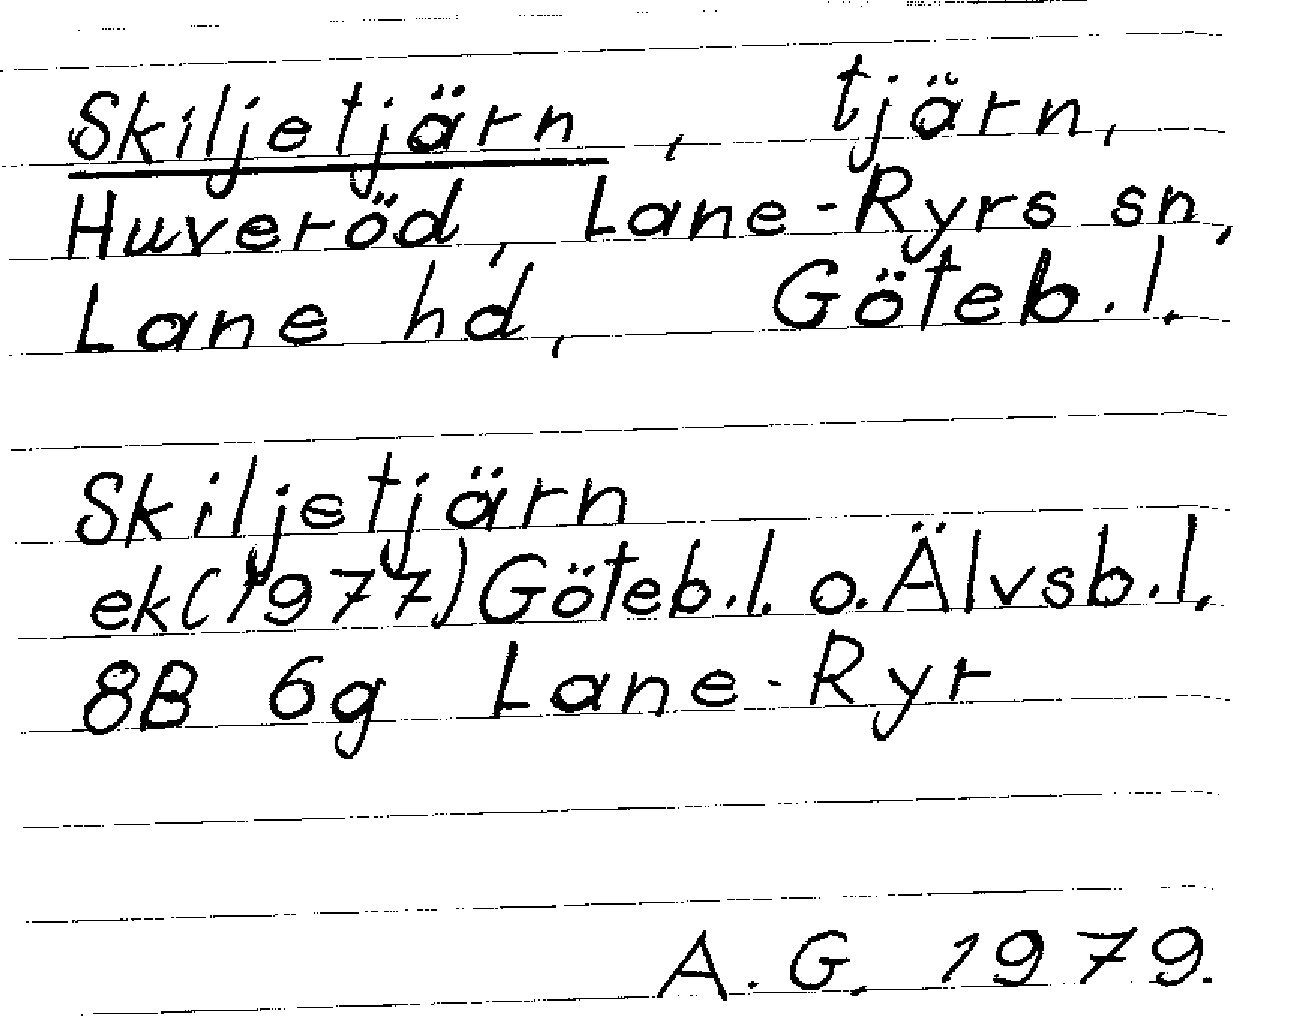 Skiljetjärn, tjärn,
Huveröd, Lane-Ryrs sn,
Lane hd, Göteb.l.
Skiljetjärn
ek(1977)Göteb.l. o.Älvsb.l.
8B 6g Lane-Ryr
A.G. 1979.